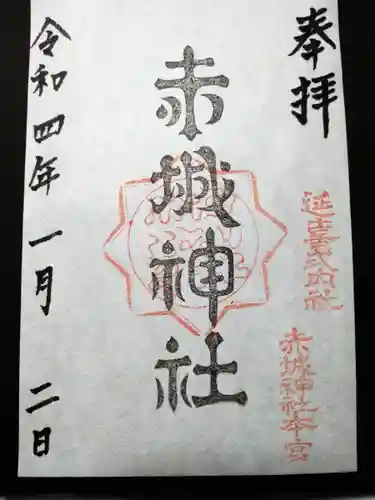 奉拝
延喜式内社
赤城神社本宮
赤城神社
令和四年一月二日